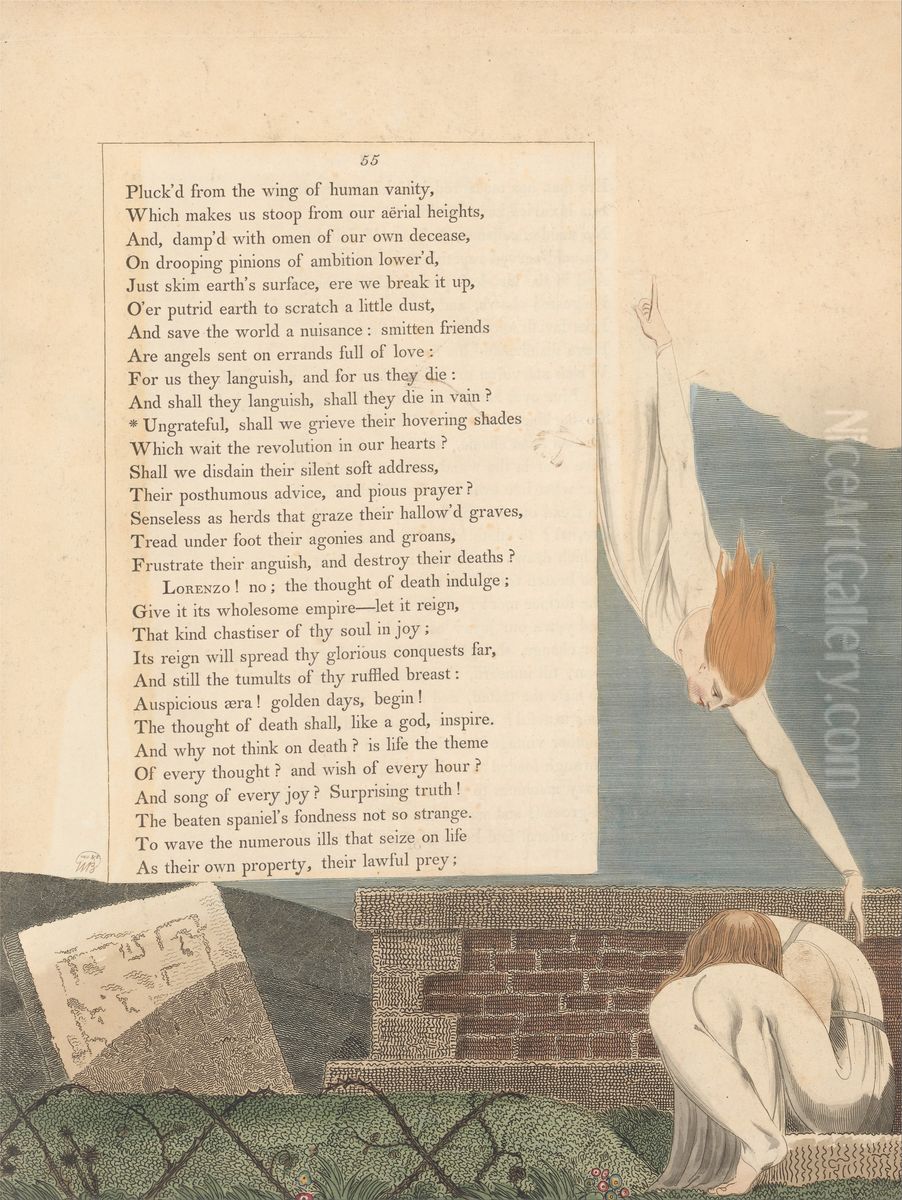 55
Pluck'd from the wing of human vanity,
Which makes us stoop from our aërial heights,
And, damp'd with omen of our own decease,
On drooping pinions of ambition lower'd,
Just skim earth's surface, ere we break it up,
O'er putrid earth to scratch a little dust,
And save the world a nuisance: smitten friends
Are angels sent on errands full of love:
For us they languish, and for us they die:
And shall they languish, shall they die in vain?
* Ungrateful, shall we grieve their hovering shades
Which wait the revolution in our hearts?
Shall we disdain their silent soft address,
Their posthumous advice, and pious prayer?
Senseless as herds that graze their hallow'd graves,
Tread under foot their agonies and groans,
Frustrate their anguish, and destroy their deaths?
LORENZO! no; the thought of death indulge;
Give it its wholesome empire—let it reign,
That kind chastiser of thy soul in joy;
Its reign will spread thy glorious conquests far,
And still the tumults of thy ruffled breast:
Auspicious æra! golden days, begin!
The thought of death shall, like a god, inspire.
And why not think on death? is life the theme
Of every thought? and wish of every hour?
And song of every joy? Surprising truth!
The beaten spaniel's fondness not so strange.
To wave the numerous ills that seize on life
As their own property, their lawful prey;
NiceArtGallery.com